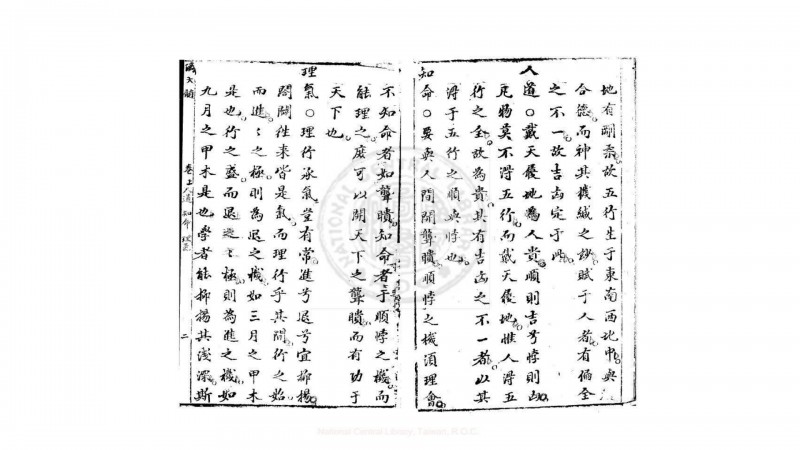 地有剛柔故五行生于東南西北中與
合德而神其機緘之妙賦于人者有偏全
之不一故吉凶定于此
人道○戴天履地為人貴順則吉兮悖則凶
凡物莫不得五行而戴天履地惟人得五
行之全故為貴其有吉凶之不一者以其
得于五行之順與悖也
知命○要與人間開聾聵順悖之機須理會
不知命者如聾聵知命者于順悖之機而
能理之庶可以開天下之聾聵而有功于
天下也
理氣○理行承氣豈有常進兮退兮宜抑揚
闔闢往來皆是氣而理行乎其間行之始
而進進之極則為退之機如三月之甲木
是也行之盛而退退之極則為進之機如
九月之甲木是也學者能抑揚其淺深斯
卷上人道 知命 理氣
二
National Central Library, Taiwan, R.O.C.